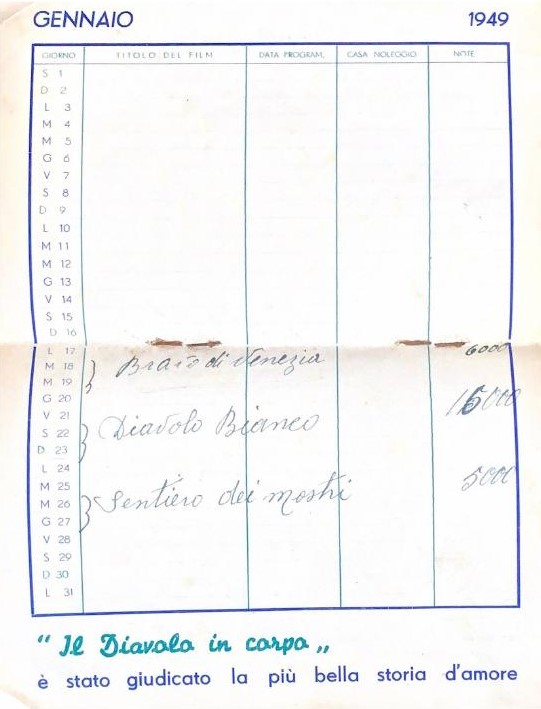 GENNAIO 1949
GIORNO TITOLO DEL FILM DATA PROGRAM. CASA NOLEGGIO NOTE
S 1
D 2
L 3
M 4
M 5
G 6
V 7
S 8
D 9
L 10
M 11
M 12
G 13
V 14
S 15
D 16
L 17 6000
M 18 di Venezia
M 19
G 20 16000
V 21
S 22 Diavolo Bianco
D 23
L 24
M 25 5000
M 26 Sentiero dei mostri
G 27
V 28
S 29
D 30
L 31
“ Il Diavolo in corpo „
è stato giudicato la più bella storia d'amore